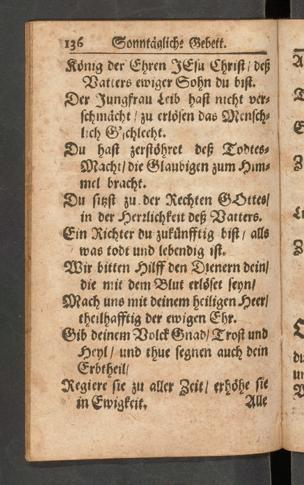 136 Sonntägliche Gebett.
König der Ehren JEsu Christ/ deß
Vatters ewiger Sohn du bist.
Der Jungfrau Leib hast nicht ver-
schmächt/ zu erlösen das Mensch-
lich Geschlecht.
Du hast zerstöhret deß Todtes-
Macht/ die Glaubigen zum Him-
mel bracht.
Du sitzst zu der Rechten GOttes/
in der Herzlichkeit deß Vatters.
Ein Richter du zukünfftig bist/ alls
was todt und lebendig ist.
Wir bitten Hilff den Dienern dein/
die mit dem Blut erlöset seyn/
Mach uns mit deinem heiligen Heer/
theilhafftig der ewigen Ehr.
Gib deinem Volck Gnad/ Trost und
Heyl/ und thue segnen auch dein
Erbtheil/
Regiere sie zu aller Zeit/ erhöhe sie
in Ewigkeit.
Alle